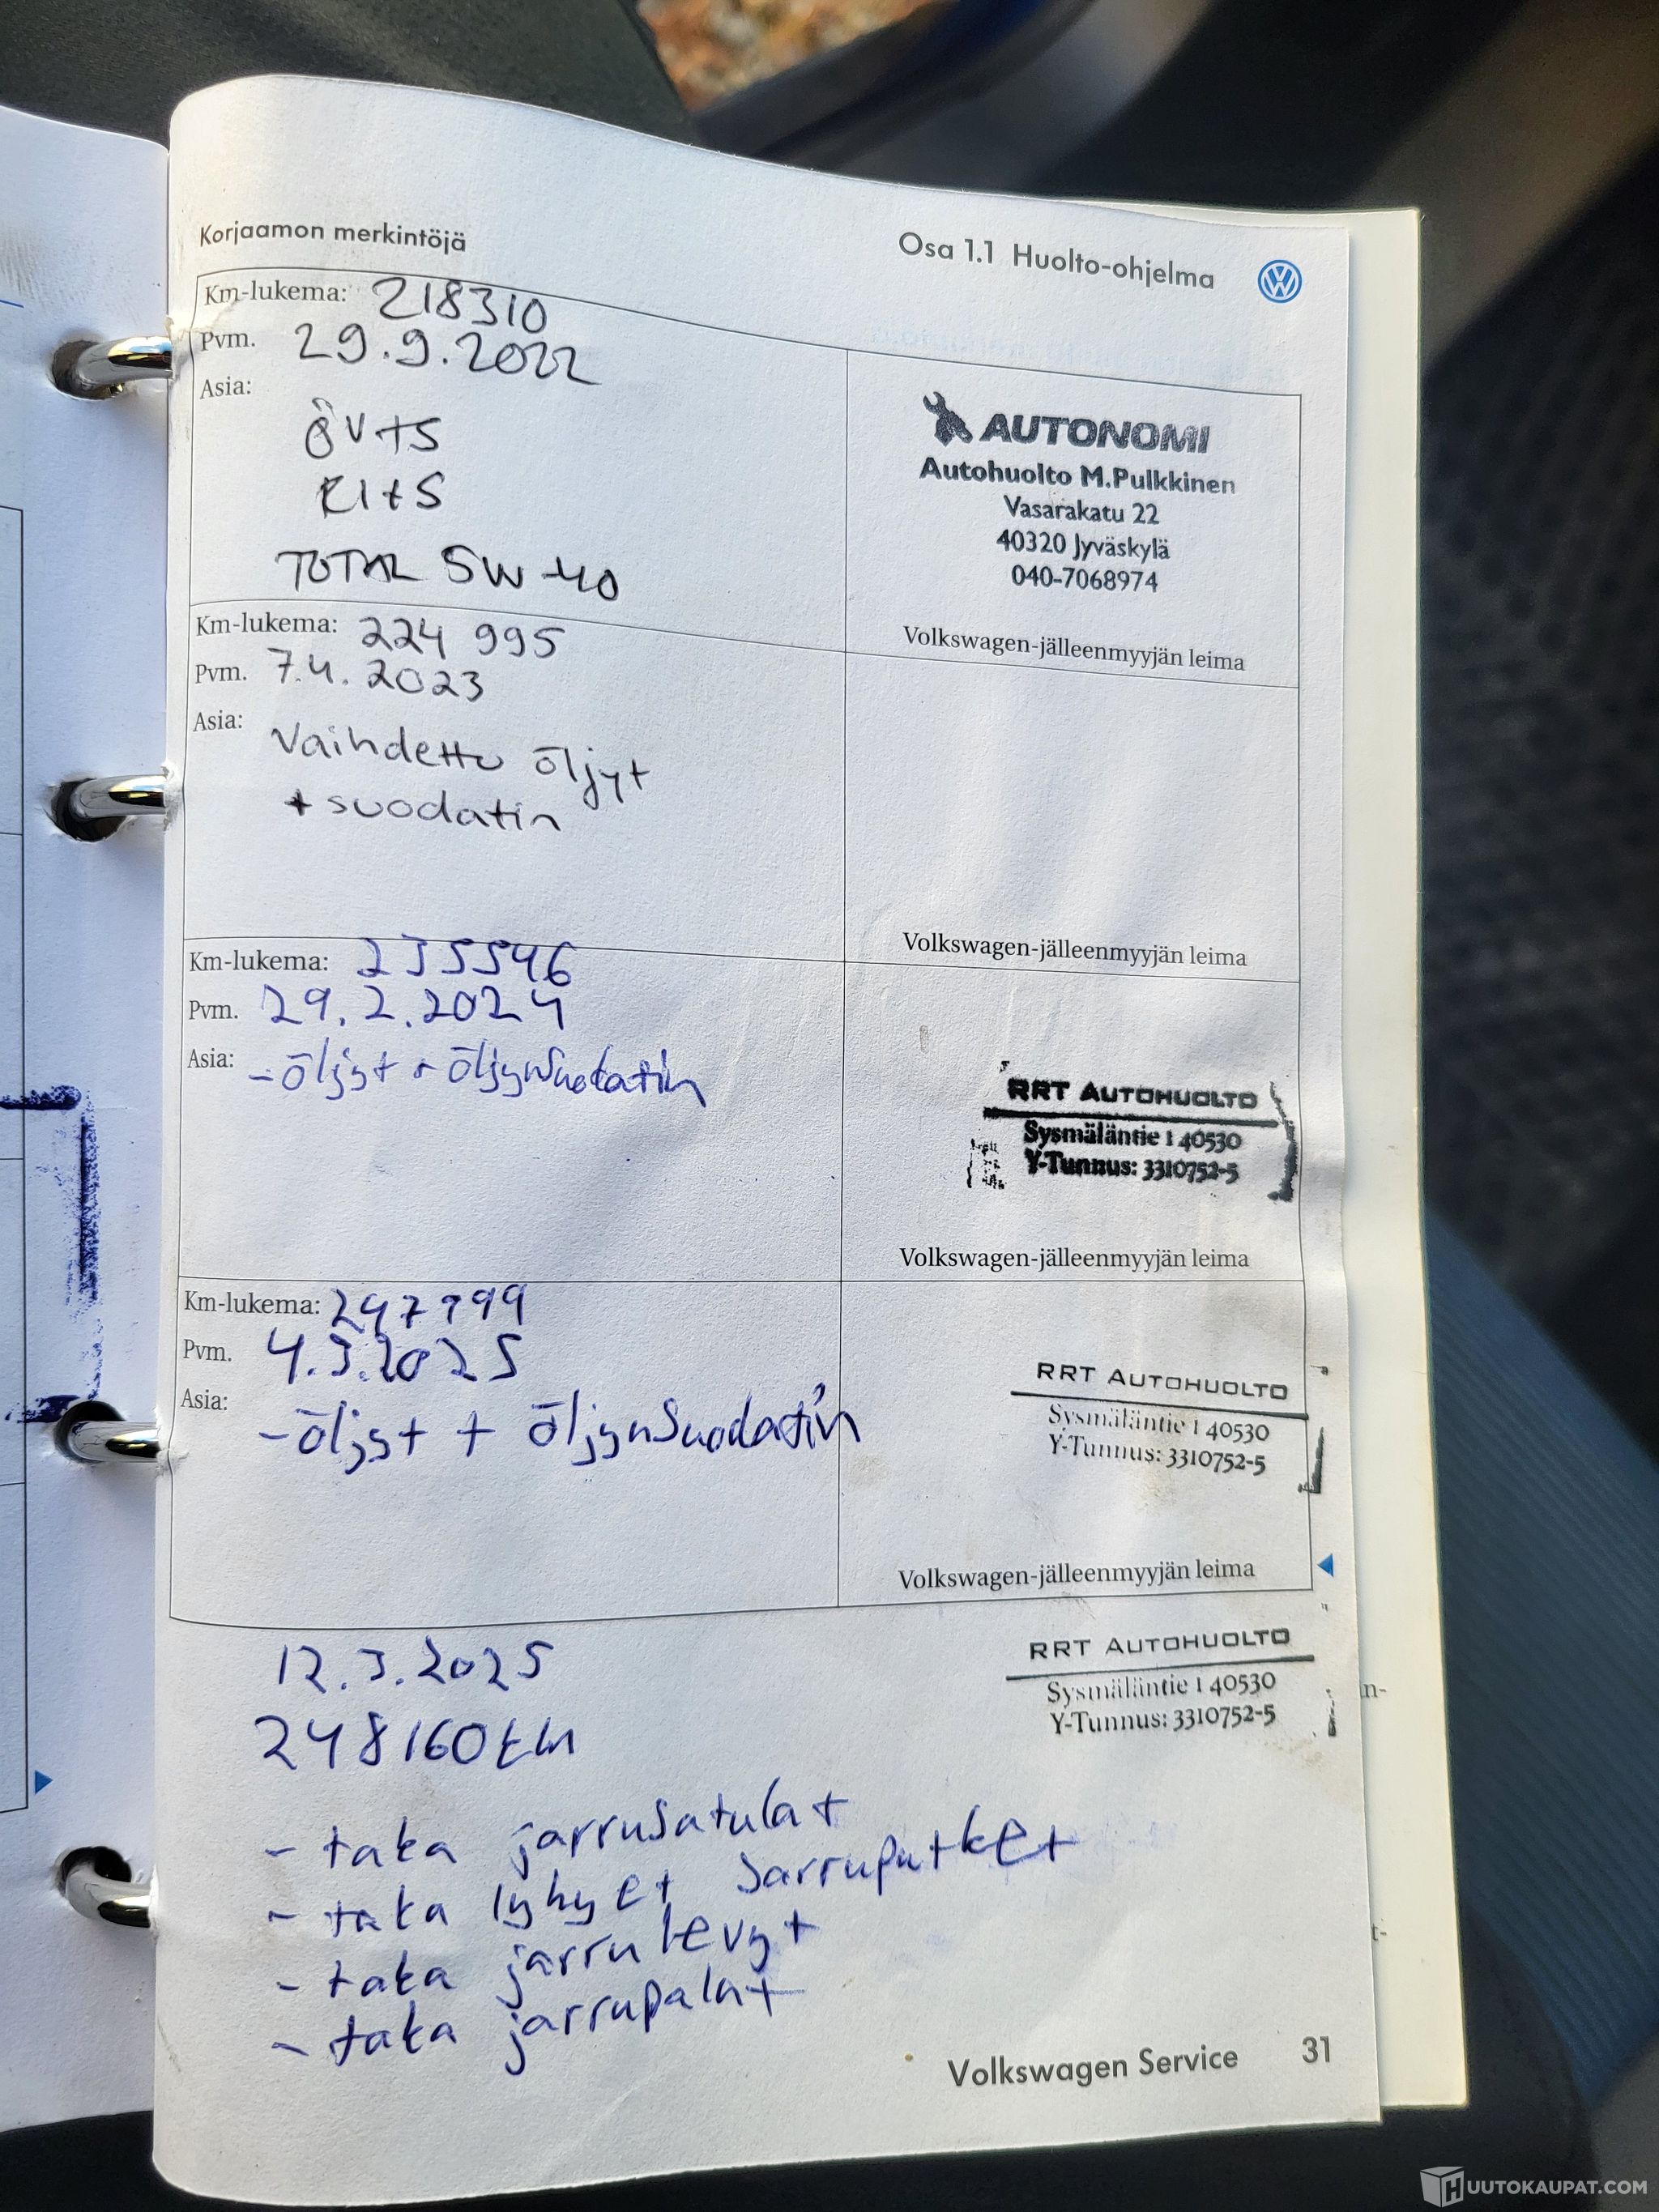 Korjaamon merkintöjä
Osa 1.1 Huolto-ohjelma
Km-lukema: 218310
Pvm. 29.9.2022
Asia:
ÖV+S
RI+S
TOTAL 5W-40
AUTONOMI
Autohuolto M.Pulkkinen
Vasarakatu 22
40320 Jyväskylä
040-7068974
Volkswagen-jälleenmyyjän leima
Km-lukema: 224 995
Pvm. 7.4.2023
Asia:
Vaihdettu öljyt
+ suodatin
Volkswagen-jälleenmyyjän leima
Km-lukema: 235546
Pvm. 29.2.2024
Asia: - öljyt + öljynsuodatin
RRT AUTOHUOLTO
Sysmäläntie 1 40530
Y-Tunnus: 3310752-5
Volkswagen-jälleenmyyjän leima
Km-lukema:
Pvm. 4.3.2025
Asia:
- öljyt + öljynsuodatin
RRT AUTOHUOLTO
Sysmäläntie 1 40530
Y-Tunnus: 3310752-5
Volkswagen-jälleenmyyjän leima
12.3.2025
248160km
RRT AUTOHUOLTO
Sysmäläntie 1 40530
Y-Tunnus: 3310752-5
- taka jarrusatulat
- taka lyhyet jarruputket
- taka jarrulevyt
- taka jarrupalat
Volkswagen Service 31
n-
t-
HUUTOKAUPAT.COM